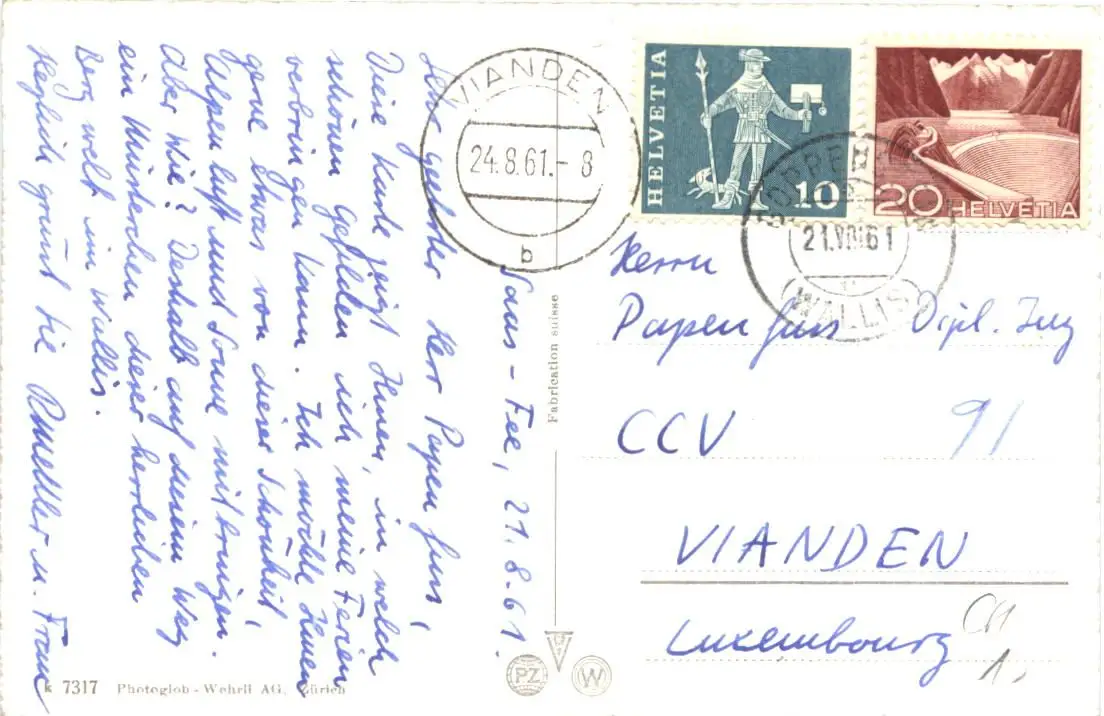 Saas-Fee, 21.8.61.
Sehr geehrter Herr Papenfuss,
Diese Karte zeigt Ihnen, in welch
schönen Gefilden ich meine Ferien
verbringen kann. Ich möchte Ihnen
gerne etwas von dieser Schönheit,
Alpenluft und Sonne mitbringen.
Aber Wie? Deshalb auf diesem Weg
ein Müsterchen dieser herrlichen
Bergwelt im Wallis.
Herzlich grüsst Sie u. Frau
k 7317 Photoglob-Wehrli AG, Zürich
Fabrication suisse
PZ
W
VIANDEN
24.8.61.-8
b
HELVETIA
10
20 HELVETIA
21.VIII.61
(WALLIS)
Herrn
Papenfuss Dipl. Ing
CCV 91
VIANDEN
Luxembourg